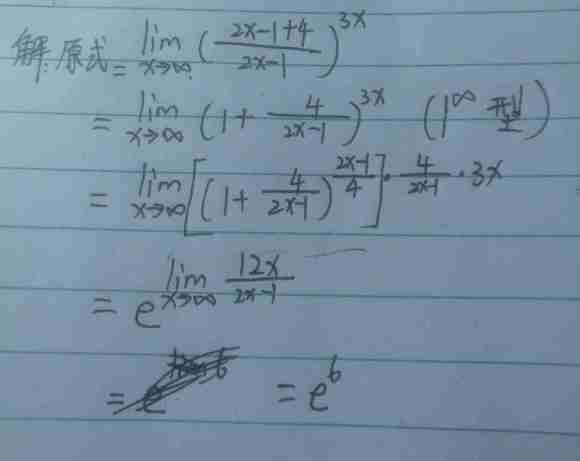 解:原式 = lim x→∞ ( (2x-1+4)/(2x-1) )^3x
= lim x→∞ (1 + 4/(2x-1))^3x (1^∞ 型)
= lim x→∞ [(1 + 4/(2x-1))^((2x-1)/4)]^(· 4/(2x-1) · 3x)
= e^(lim x→∞ 12x/(2x-1))
= e^6